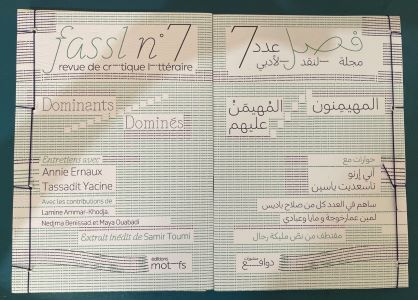 fassl n°7
revue de critique littéraire
Dominants
Dominés
Entretiens avec
Annie Ernaux
Tassadit Yacine
Avec les contributions de
Lamine Ammar-Khodja,
Nedjma Benissad et Maya Ouabadi
Extrait inédit de Samir Toumi
éditions
motifs
فصل عدد 7
مجلة النقد الأدبي
المهيمنون
المُهيمَنُ
عليهم
حوارات مع
آني إرنو
تاسعديت ياسين
ساهم في العدد كل من صلاح باديس
لمين عمارخوجة و مايا وعبادي
مقتطف من نصّ مليكة رحال
منشورات
دوافع